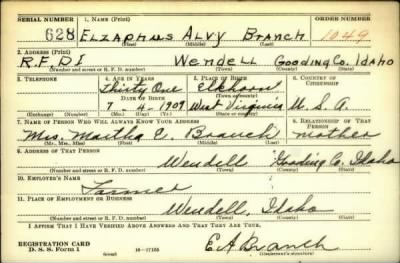 SERIAL NUMBER 1. NAME (Print) ORDER NUMBER
628 ELZAPHANS ALVY BRANCH 1049
(First) (Middle) (Last)
2. ADDRESS (Print)
R.F.D 1 Wendell Gooding Co. Idaho
(Number and street or R. F. D. number) (Town) (County) (State)
3. TELEPHONE 4. AGE IN YEARS 5. PLACE OF BIRTH 6. COUNTRY OF CITIZENSHIP
Thirty One Elkhorn
DATE OF BIRTH (Town or county)
7-4-1909 West Virginia U.S.A.
(Exchange) (Number) (Mo.) (Day) (Yr.) (State or country)
7. NAME OF PERSON WHO WILL ALWAYS KNOW YOUR ADDRESS 8. RELATIONSHIP OF THAT PERSON
Mrs. Martha E. Branch mother
(Mr., Mrs., Miss) (First) (Middle) (Last)
9. ADDRESS OF THAT PERSON
Wendell Gooding Co. Idaho
(Number and street or R. F. D. number) (Town) (County) (State)
10. EMPLOYER'S NAME
Farmer
11. PLACE OF EMPLOYMENT OR BUSINESS
Wendell, Idaho
(Number and street or R. F. D. number) (Town) (County) (State)
I AFFIRM THAT I HAVE VERIFIED ABOVE ANSWERS AND THAT THEY ARE TRUE.
REGISTRATION CARD
D. S. S. Form 1 (over) 16-17105 E A Branch
(Registrant's signature)